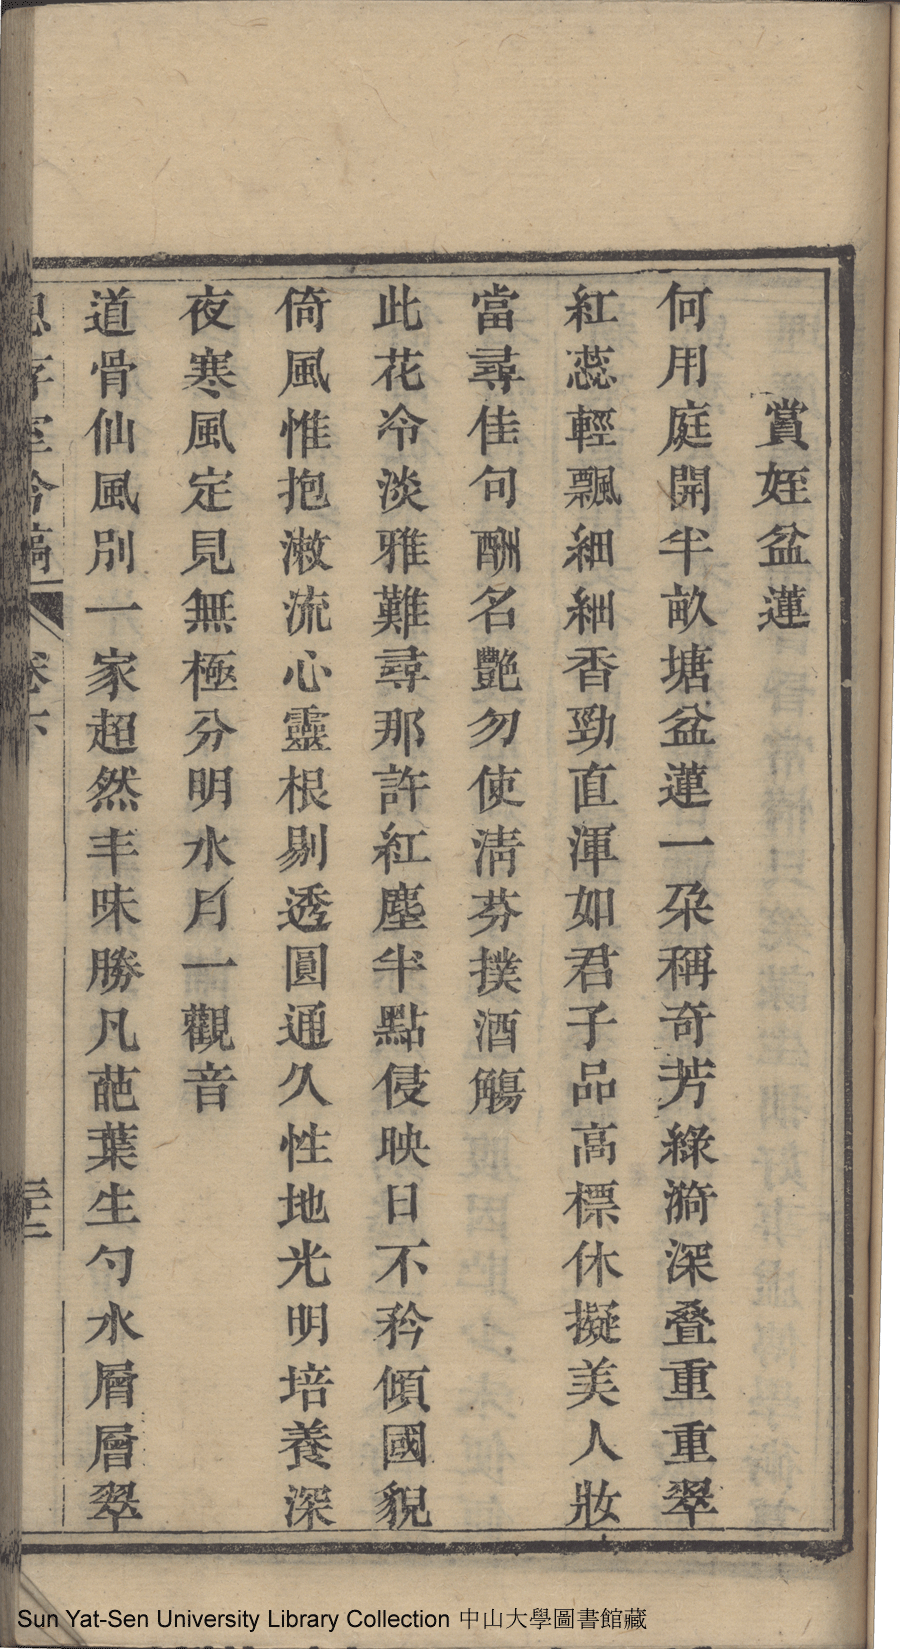 賞姪盆蓮
何用庭開半畝塘盆蓮一朶稱奇芳綠漪深叠重重翠
紅蕊輕飄細細香勁直渾如君子品高標休擬美人妝
當尋佳句酬名艷勿使淸芬撲酒觴
此花冷淡雅難尋那許紅塵半點侵映日不矜傾國貌
倚風惟抱潄流心靈根剔透圓通久性地光明培養深
夜寒風定見無極分明水月一觀音
道骨仙風別一家超然丰味勝凡葩葉生勺水層層翠
吟稿 卷六
Sun Yat-Sen University Library Collection 中山大學圖書館藏